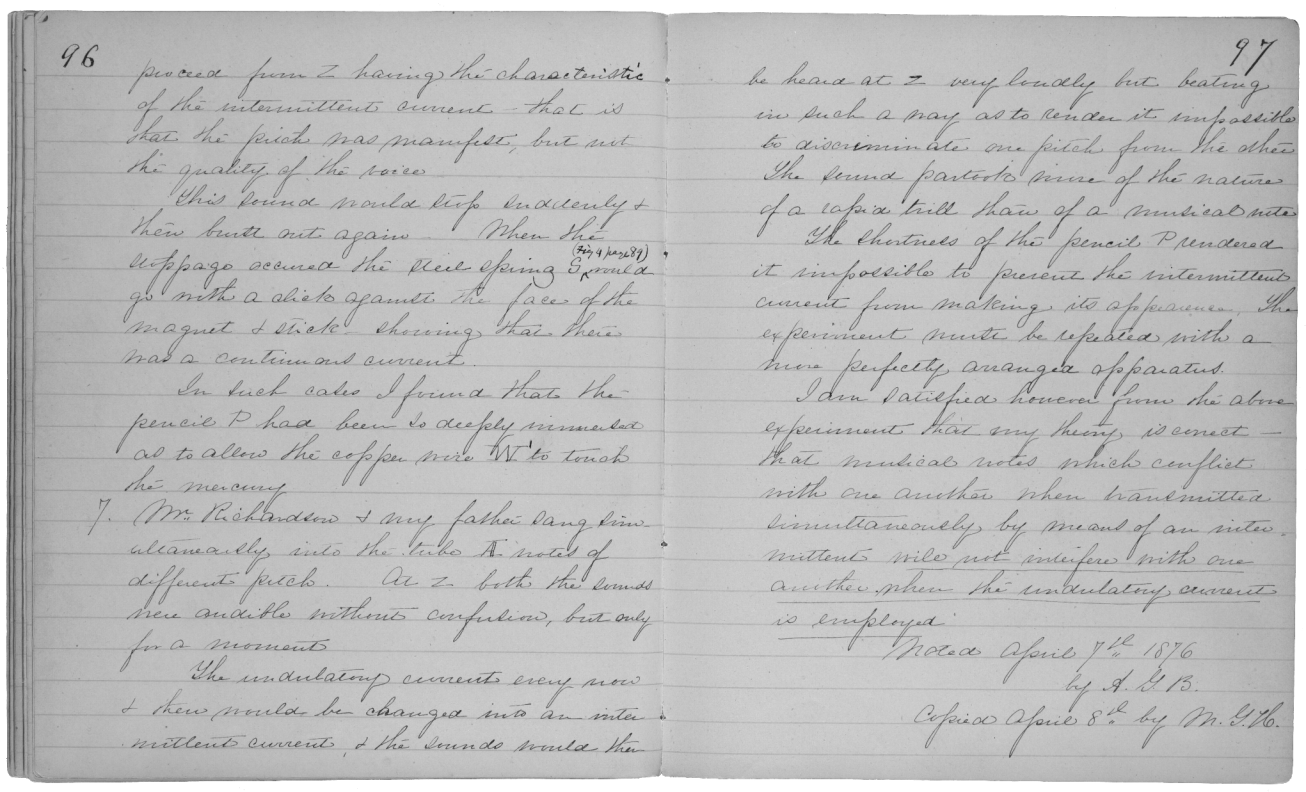 96
proceed from Z having the characteristic
of the intermittent current – that is
that the pitch was manifest, but not
the quality of the voice
This sound would stop suddenly &
then burst out again When the
(Fig 4 page 89)
stoppage occured the steel spring S would
go with a click against the face of the
magnet & stick – showing that there
was a continuous current.
In such cases I found that the
pencil P had been so deeply immersed
as to allow the copper wire W' to touch
the mercury
7. Mr. Richardson & my father sang sim-
ultaneously into the tube A notes of
different pitch. At Z both the sounds
were audible without confusion, but only
for a moment
The undulatory current every now
& then would be changed into an inter
mittent current, & the sounds would then
97
be heard at Z very loudly but beating
in such a way as to render it impossible
to discriminate one pitch from the other
The sound partook more of the nature
of a rapid trill than of a musical note
The shortness of the pencil P rendered
it impossible to prevent the intermittent
current from making its appearance. The
experiment must be repeated with a
more perfectly arranged apparatus.
I am satisfied however from the above
experiment that my theory is correct –
that musical notes which conflict
with one another when transmitted
simultaneously by means of an inter-
mittent will not interfere with one
another when the undulatory current
is employed
Noted April 7th 1876
by A. G. B.
Copied April 8th by M. G. H.